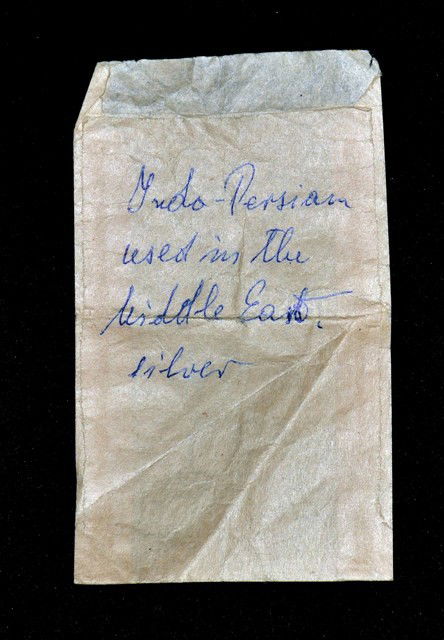 Indo-Persian
used in the
Middle East,
silver